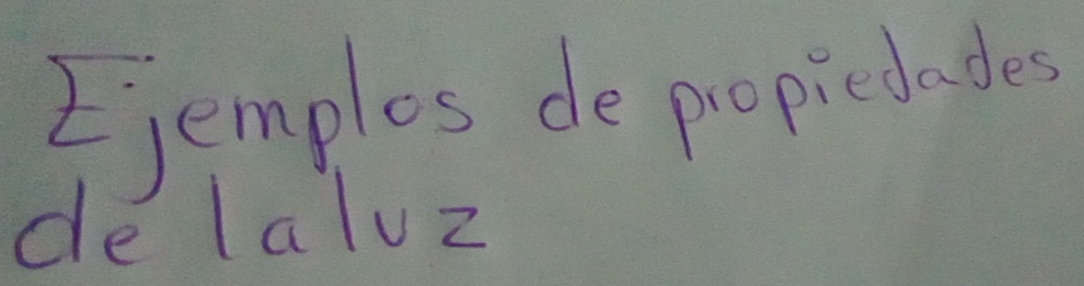 Ejemplos de propiedades
de la luz